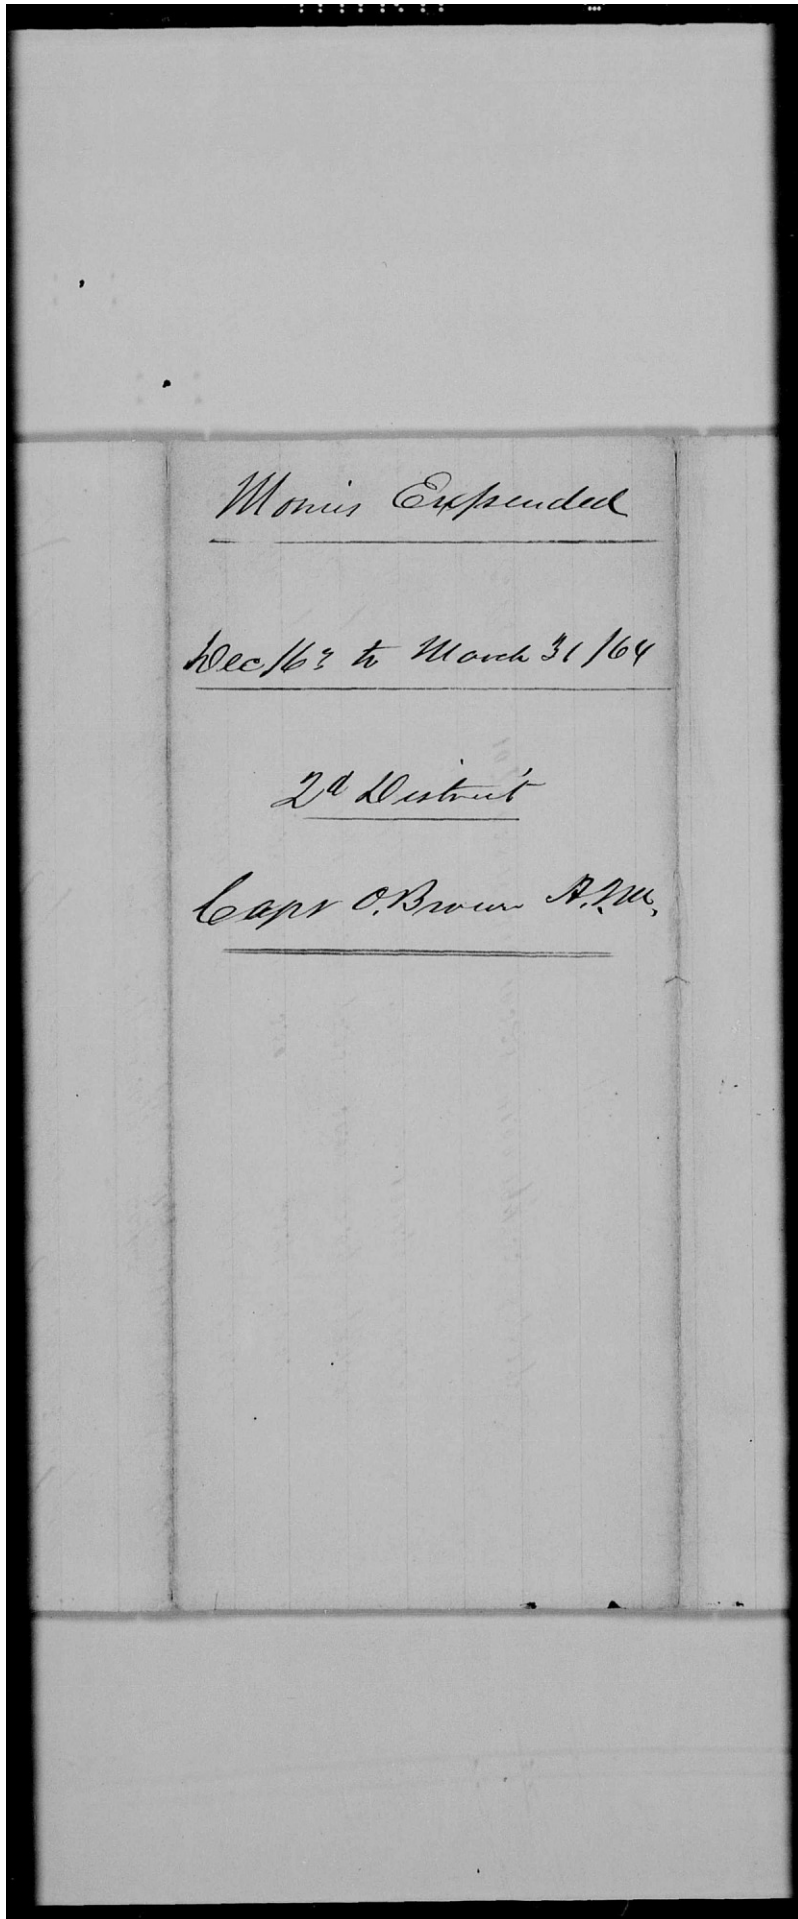 Monies Expended
Dec/63 to March 31/64
2d District
Capt O. Brown A.Q.M.